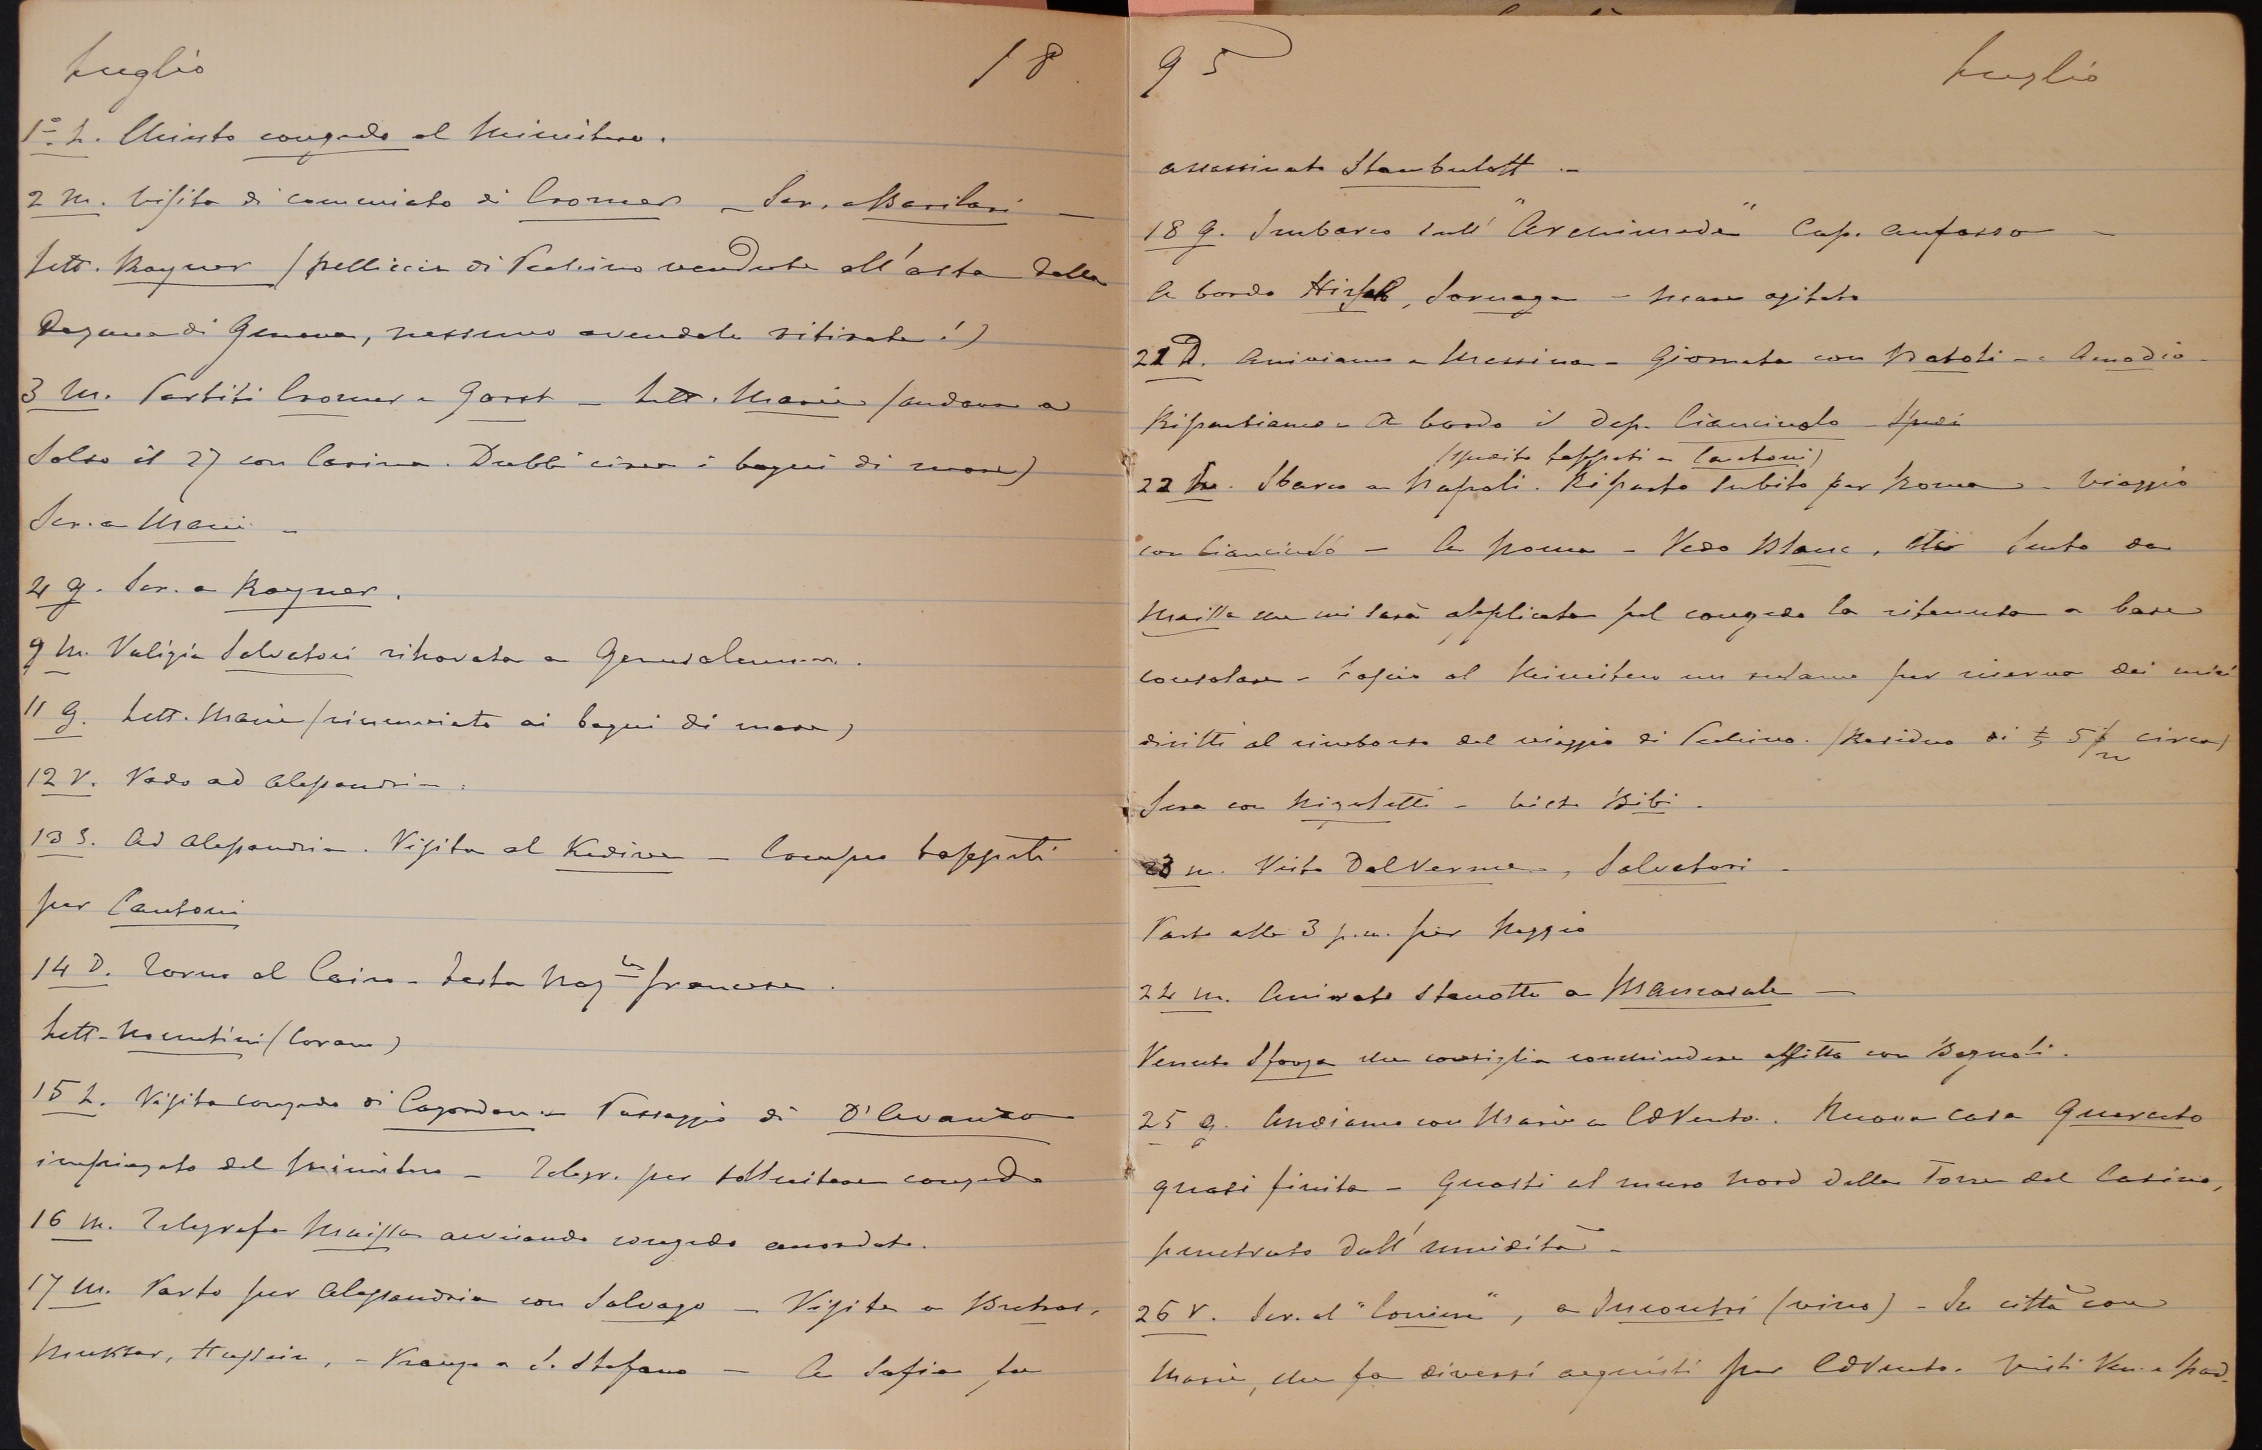 Luglio 18
1º. L. Chiesto congedo al Ministero.
2 M. Visita di commiato di Cromer _ Scr. a Barilari _
Lett. Rayner (pelliccia di Pechino venduta all'asta dalla
Dogana di Genova, nessuno avendola ritirata!)
3 M. Partiti Cromer e Gorst _ Lett. Maria (andava a
Salso il 27 con Carina. Dubbi circa i bagni di mare)
Scr. a Maria _
4 g. Scr. a Rayner.
9 M. Valigia Salvatori ritrovata a Gerusalemme.
11 g. Lett. Maria (rinunciato ai bagni di mare)
12 V. Vado ad Alessandria.
13 S. Ad Alessandria. Visita al Kedive _ Compro tappeti
per Cantoni
14 D. Torno al Cairo _ Festa Naz.le francese.
Lett. Nocentini (Corano)
15 L. Visita congedo di Cogordan _ Passaggio di D'Avanzo
impiegato del Ministero _ Telegr. per sollecitare congedo
16 M. Telegrafa Maissa avvisando congedo accordato.
17 M. Parto per Alessandria con Salvago _ Visite a Butros,
Muktar, Hussein, _ Pranzo a S. Stefano _ A Sofia fu
95 Luglio
assassinato Stambuloff _
18 g. Imbarco sull' "Archimede" Cap. Anfosso _
A bordo Hirsch, Sornaga _ Mare agitato
21 D. Arriviamo a Messina _ Giornata con Natoli e Amodio _
Ripartiamo _ A bordo il Dep. Cianciolo
(spedito tappeti a Cantoni)
22 L. Sbarco a Napoli. Riparto subito per Roma _ Viaggio
con Cianciolo _ A Roma _ Vedo Blanc, Sento da
Maissa che mi sarà applicata pel congedo la ritenuta a base
consolare _ Lascio al Ministero un reclamo per riserva dei miei
diritti al rimborso del viaggio di Pechino. (Residuo di £ 5/m circa)
Sera con Nigoletti _ Vista Bibi.
23 M. Visto Dal Verme, Salvatori _
Parto alle 3 p.m. per Reggio
24 M. Arrivato stanotte a Mancasale _
Venuto Sforza che consiglia conchiudere affitto con Bagnoli.
25 g. Andiamo con Maria a Cavento. Nuova casa Querceto
quasi finita _ Guasti al muro Nord della Torre del Casino,
penetrato dall'umidità _
26 V. Scr. al "Corriere", a Incontri (vino) _ In città con
Maria, che fa diversi acquisti per Cavento. Visti Ven. e Spad.